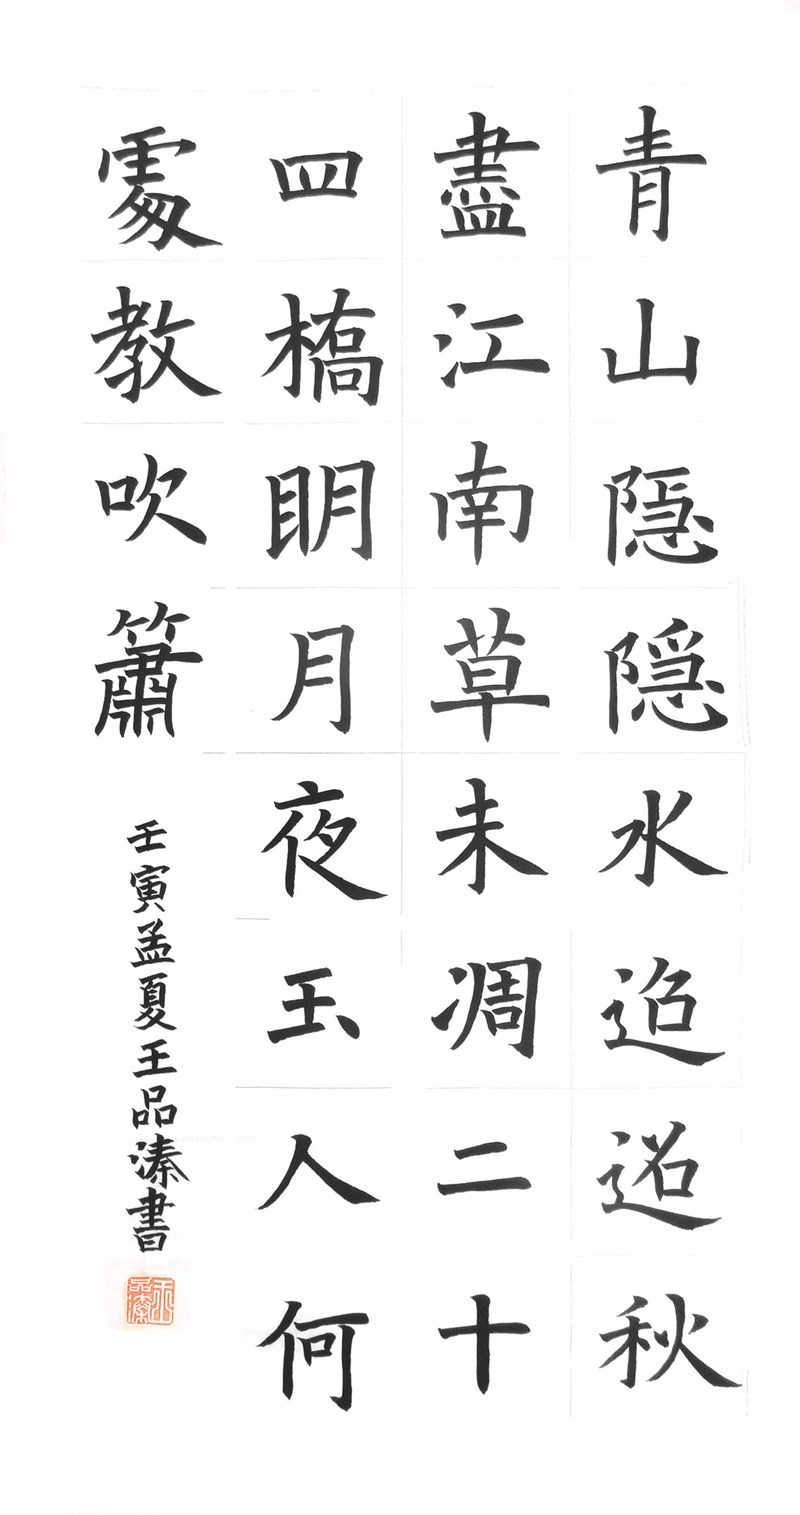 青山隐隐水迢迢秋
盡江南草未凋二十
四橋明月夜玉人何
處教吹簫
壬寅孟夏王品溱書
王品溱